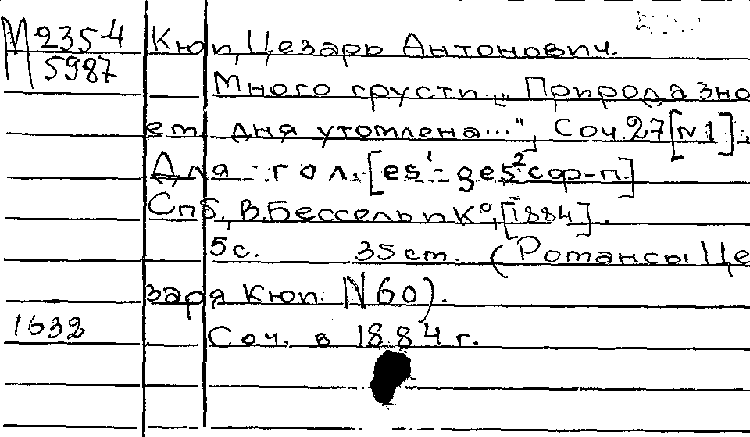 М 2354
5987
Кюи, Цезарь Антонович.
Много грусти. „Природа зно
ет, дня утомлена...", Соч. 27 [N1]:
Для гол. [es¹-ges² с ф-п.]
Спб., В. Бессель и К⁰, [1884].
5 с. 35 см. (Романсы Це
заря Кюи. N 60).
1632
Соч. в 1884 г.